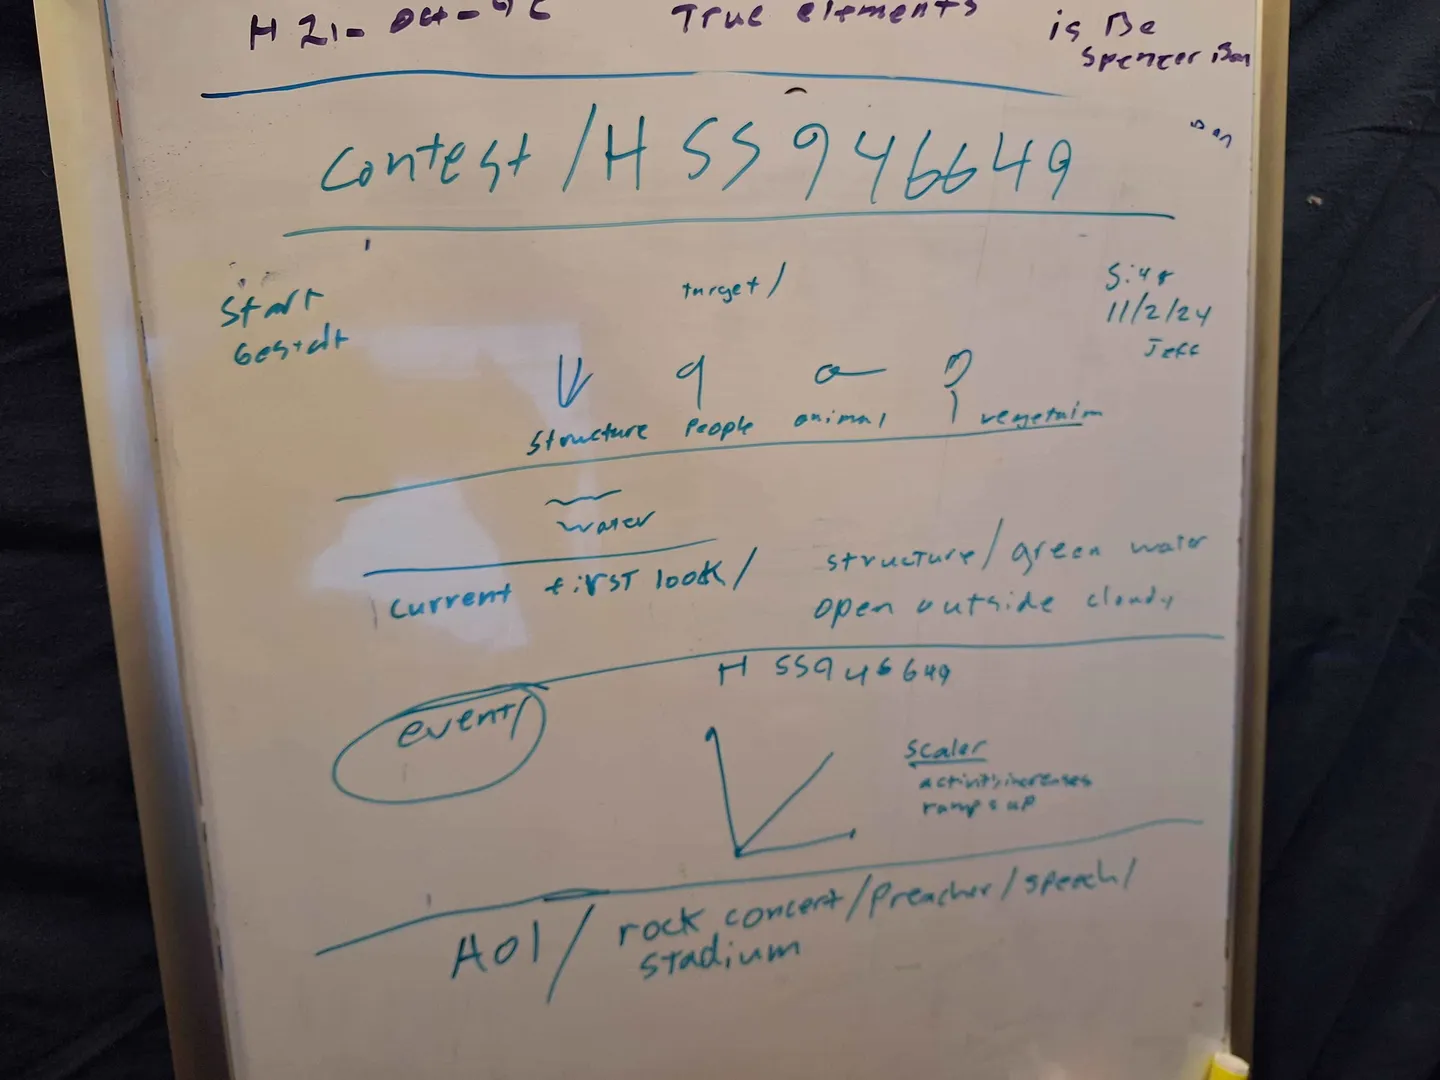 True elements
is Be
Contest / H SS946649
Start
Gestalt
target /
11/2/24
Jeff
structure people animal vegetaim
water
Current first look /
structure / green water
open outside cloudy
H SS946649
event/
Scaler
activity increases
ramps up
AOI / rock concert / preacher / speech /
stadium